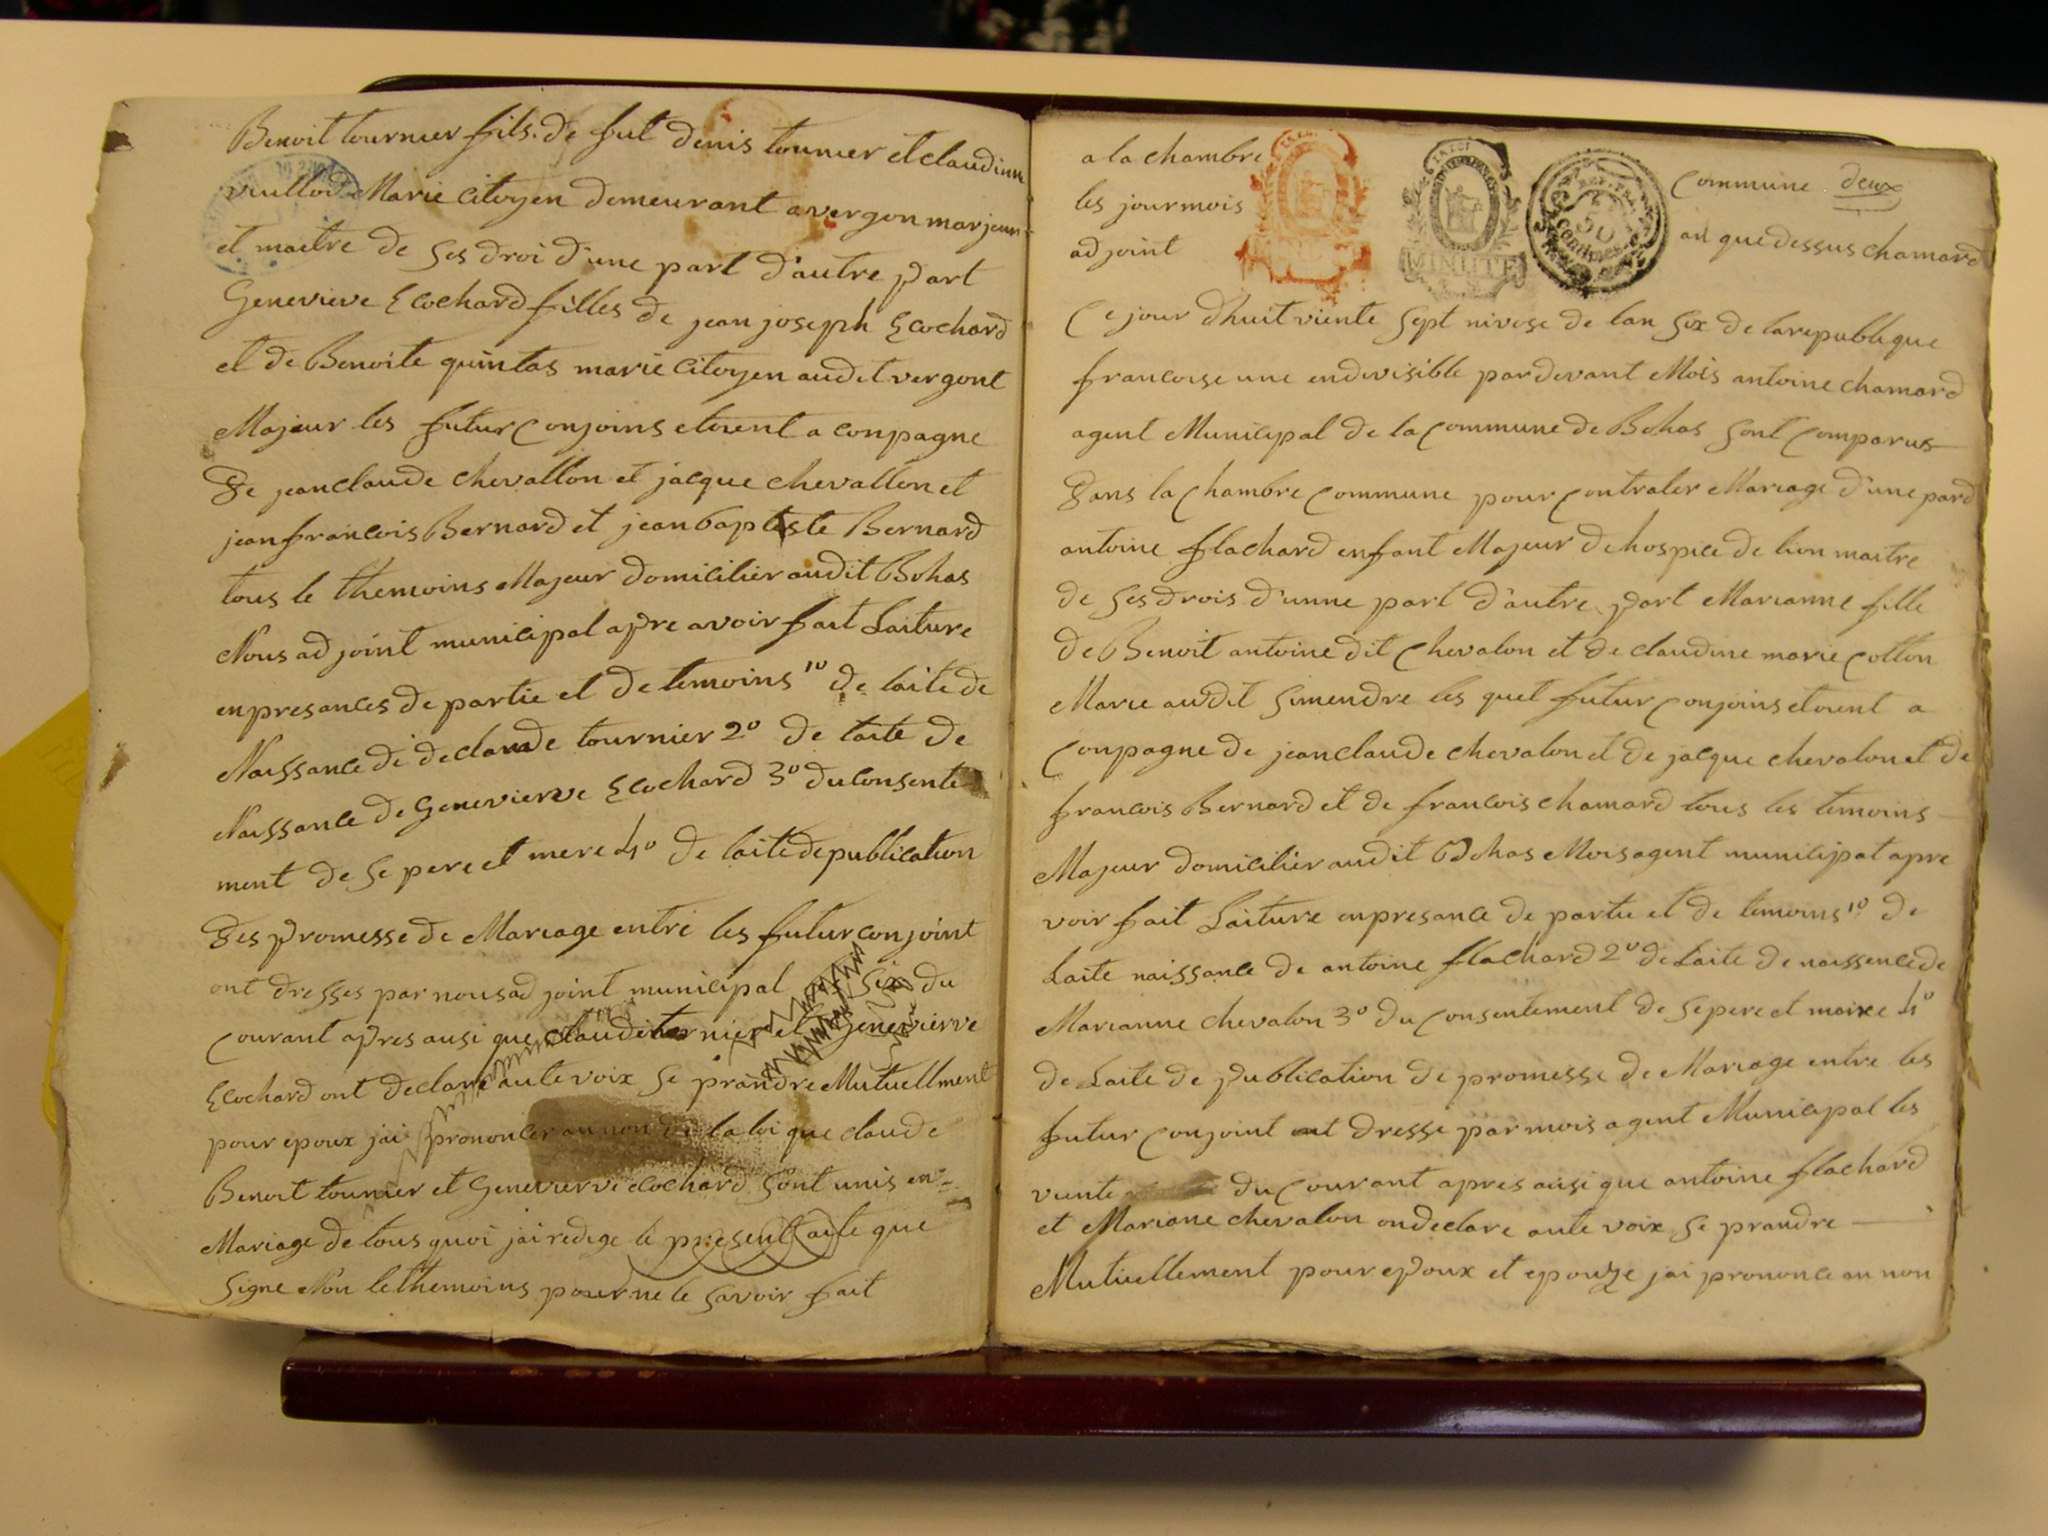 Benoit tournier fils. de fut denis tournier et claudinn
vuillod Marie Citoyen demeurant a vergon marjeur
et maitre de ses droi d'une part d'autre part
Genevieve Ecochard filles de jean joseph Ecochard
et de Benoite quintas marie Citoyen audit vergont
Majeur les futur conjoins etoient a conpagne
de jean claude chevallon et jacque chevallon et
jean francois Bernard et jean baptiste Bernard
tous le themoins Majeur domicilier audit Bohas
Nous adjoint municipal apre avoir fait Laiture
en presances de partie et de temoins 1º de laite de
Naissance de claude tournier 2º de laite de
Naissance de Genevierve Ecochard 3º du consente
ment de se pere et mere 4º de laite de publication
des promesse de Mariage entre les futur conjoint
ont dresses par nous adjoint municipal six du
courant apres ausi que et Genevierve
Ecochard ont declare aute voix se prandre Mutuellment
pour epoux jai prononcer au non de la loi que claude
Benoit tournier et Genevierve Ecochard sont unis en
Mariage de tous quoi jai redige le present aite que
signe Non le themoins pour ne le savoir fait
a la chambre commune deux
les jour mois an que dessus chamard
adjoint
LA LOI
MINUTE
REP. FRA.
50
CENTIMES
Ce jour dhuit viente sept nivose de lan six de la republique
francoise une endivisible pardevant Mois antoine chamard
agent Municipal de la commune de Bohas sont comparus
dans la chambre commune pour contrater Mariage d'une pard
antoine flachard enfant Majeur de hospice de lion maitre
de ses drois d'unne part d'autre part Marianne fille
de Benoit antoine dit chevalon et de claudine marie cotton
Marie audit simendre les quel futur conjoins etoient a
conpagne de jean claude chevalon et de jacque chevalon et de
francois Bernard et de francois chamard tous les temoins
Majeur domicilier audit Bohas Mois agent municipal apre
voir fait Laiture en presance de partie et de temoins 1º de
Laite naissance de antoine flachard 2º de Laite de naissence de
Marianne chevalon 3º du consentement de se pere et maire 4º
de Laite de publication de promesse de Mariage entre les
futur conjoint ont dresse par mois agent Municipal les
viente du courant apres ausi que antoine flachard
et Mariane chevalon on declare aute voix se prandre
Mutiuellement pour epoux et epouze jai prononce au non